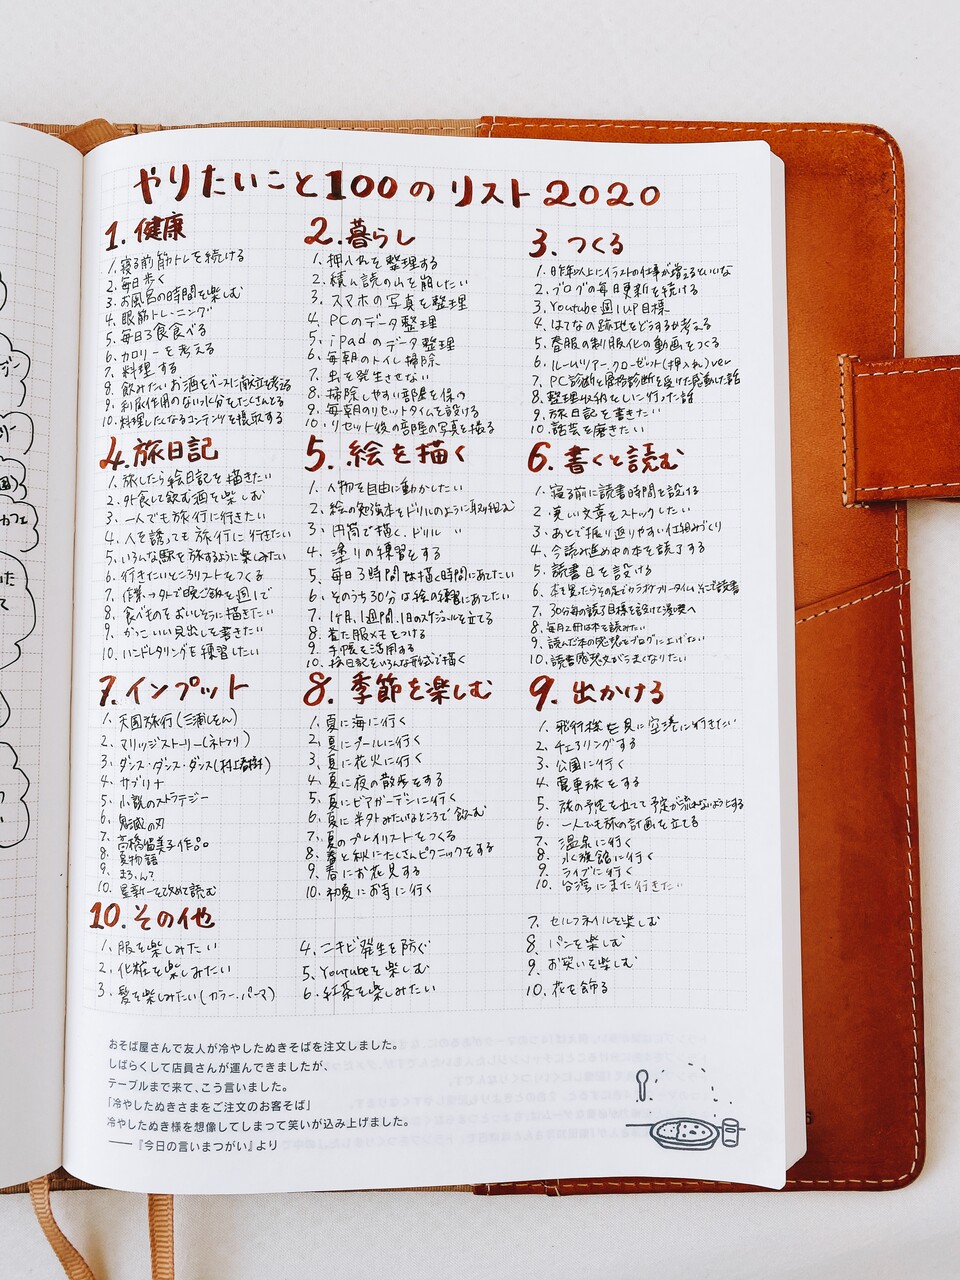 やりたいこと100のリスト2020
1. 健康
1. 寝る前筋トレを続ける
2. 毎日歩く
3. お風呂の時間を楽しむ
4. 眼筋トレーニング
5. 毎日3食食べる
6. カロリーを考える
7. 料理する
8. 飲みたいお酒をベースに献立を考える
9. 利尿作用のない水分をたくさんとる
10. 料理したくなるコンテンツを摂取する
2. 暮らし
1. 押入れを整理する
2. 積ん読の山を崩したい
3. スマホの写真を整理
4. PCのデータ整理
5. iPadのデータ整理
6. 毎朝のトイレ掃除
7. 虫を発生させない
8. 掃除しやすい部屋を保つ
9. 毎朝のリセットタイムを設ける
10. リセット後の部屋の写真を撮る
3. つくる
1. 昨年以上にイラストの仕事が増えるといいな
2. ブログの毎日更新を続ける
3. Youtube週1UP目標
4. はてなの跡地をどうするか考える
5. 春服の制服化の動画をつくる
6. ルームツアー、クローゼット(押入れ)ver
7. PC診断と骨格診断を受けた感動した話
8. 整理収納をしに行った話
9. 旅日記を書きたい
10. 話芸を磨きたい
4. 旅日記
1. 旅したら絵日記を描きたい
2. 外食して飲む酒を楽しむ
3. 一人でも旅行に行きたい
4. 人を誘っても旅行に行きたい
5. いろんな駅を旅するように楽しみたい
6. 行きたいところリストをつくる
7. 作業→外で晩ご飯を週1で
8. 食べものをおいしそうに描きたい
9. かっこいい見出しを書きたい
10. ハンドレタリングを練習したい
5. 絵を描く
1. 人物を自由に動かしたい
2. 絵の勉強本をドリルのように取り組む
3. 円筒で描く、ドリル 〃
4. 塗りの練習をする
5. 毎日3時間は描く時間にあてたい
6. そのうち30分は絵の練習にあてたい
7. 1ヶ月、1週間、1日のスケジュールを立てる
8. 着た服メモをつける
9. 手帳を活用する
10. 旅日記をいろんな形式で描く
6. 書くと読む
1. 寝る前に読書時間を設ける
2. 美しい文章をストックしたい
3. あとで振り返りやすい仕組みづくり
4. 今読み進め中の本を読了する
5. 読書日を設ける
6. 本を買ったらその足でカラオケフリータイム、そこで読書
7. 30分毎の読了目標を設けて漫喫へ
8. 毎月2冊は本を読みたい
9. 読んだ本の感想をブログに上げたい
10. 読書感想文がうまくなりたい
7. インプット
1. 天国旅行(三浦しをん)
2. マリッジストーリー(ネトフリ)
3. ダンス・ダンス・ダンス(村上春樹)
4. サブリナ
5. 小説のストラテジー
6. 鬼滅の刃
7. 高橋留美子作品
8. 夏物語
9. まろ、ん?
10. 星新一を改めて読む
8. 季節を楽しむ
1. 夏に海に行く
2. 夏にプールに行く
3. 夏に花火に行く
4. 夏に夜の散歩をする
5. 夏にビアガーデンに行く
6. 夏に半外みたいなところで飲む
7. 夏のプレイリストをつくる
8. 春と秋にたくさんピクニックをする
9. 春にお花見する
10. 初夏にお寺に行く
9. 出かける
1. 飛行機を見に空港に行きたい
2. チェアリングする
3. 公園に行く
4. 電車旅をする
5. 旅の予定を立てて予定が流れないようする
6. 一人でも旅の計画を立てる
7. 温泉に行く
8. 水族館に行く
9. ライブに行く
10. 台湾にまた行きたい
10. その他
1. 服を楽しみたい
2. 化粧を楽しみたい
3. 髪を楽しみたい(カラー、パーマ)
4. ニキビ発生を防ぐ
5. Youtubeを楽しむ
6. 紅茶を楽しみたい
7. セルフネイルを楽しむ
8. パンを楽しむ
9. お笑いを楽しむ
10. 花を飾る
おそば屋さんで友人が冷やしたぬきそばを注文しました。
しばらくして店員さんが運んできましたが、
テーブルまで来て、こう言いました。
「冷やしたぬきさまをご注文のお客そば」
冷やしたぬき様を想像してしまって笑いが込み上げました。
――『今日の言いまつがい』より
カフェ